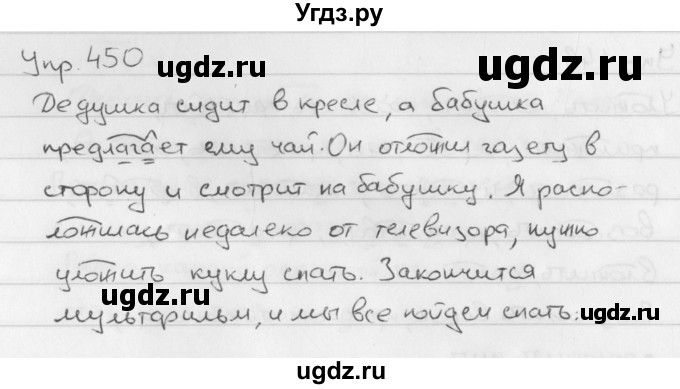 Угдз.ру
Упр. 450
ugdz.ru
ugdz.ru
Дедушка сидит в кресле, а бабушка
предлагает ему чай. Он отложил газету в
сторону и смотрит на бабушку. Я распо-
ложилась недалеко от телевизора, нужно
уложить куклу спать. Закончится
ugdz.ru
ugdz.ru
мультфильм, и мы все пойдем спать.